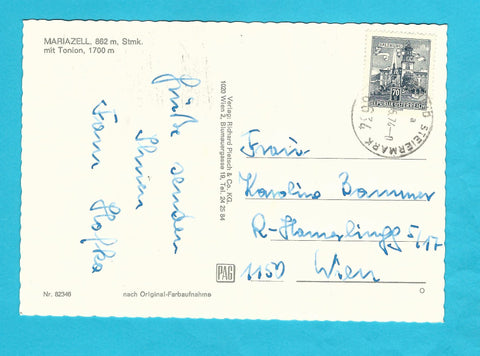 MARIAZELL, 862 m, Stmk.
mit Tonion, 1700 m
Grüße senden
Ihnen
Fam Hofka
Verlag: Richard Pietsch & Co. KG.
1020 Wien 2, Blumauergasse 19, Tel. 24 25 84
REPUBLIK ÖSTERREICH
70
STEIERMARK
Frau
Karolina Bammer
R-Hamerlingg 5/17
1150 Wien
PAG
Nr. 82346
nach Original-Farbaufnahme